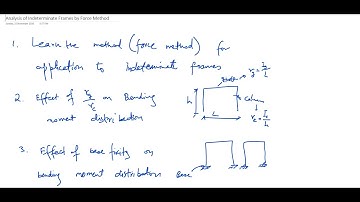 Analysis of Indeterminate Frames by Force Method
1. Learn the method (force method) for
application to indeterminate frames
2. Effect of on Bending
moment distribution
3. Effect of base fixity on
bending moment distribution
h
L
Column
Base